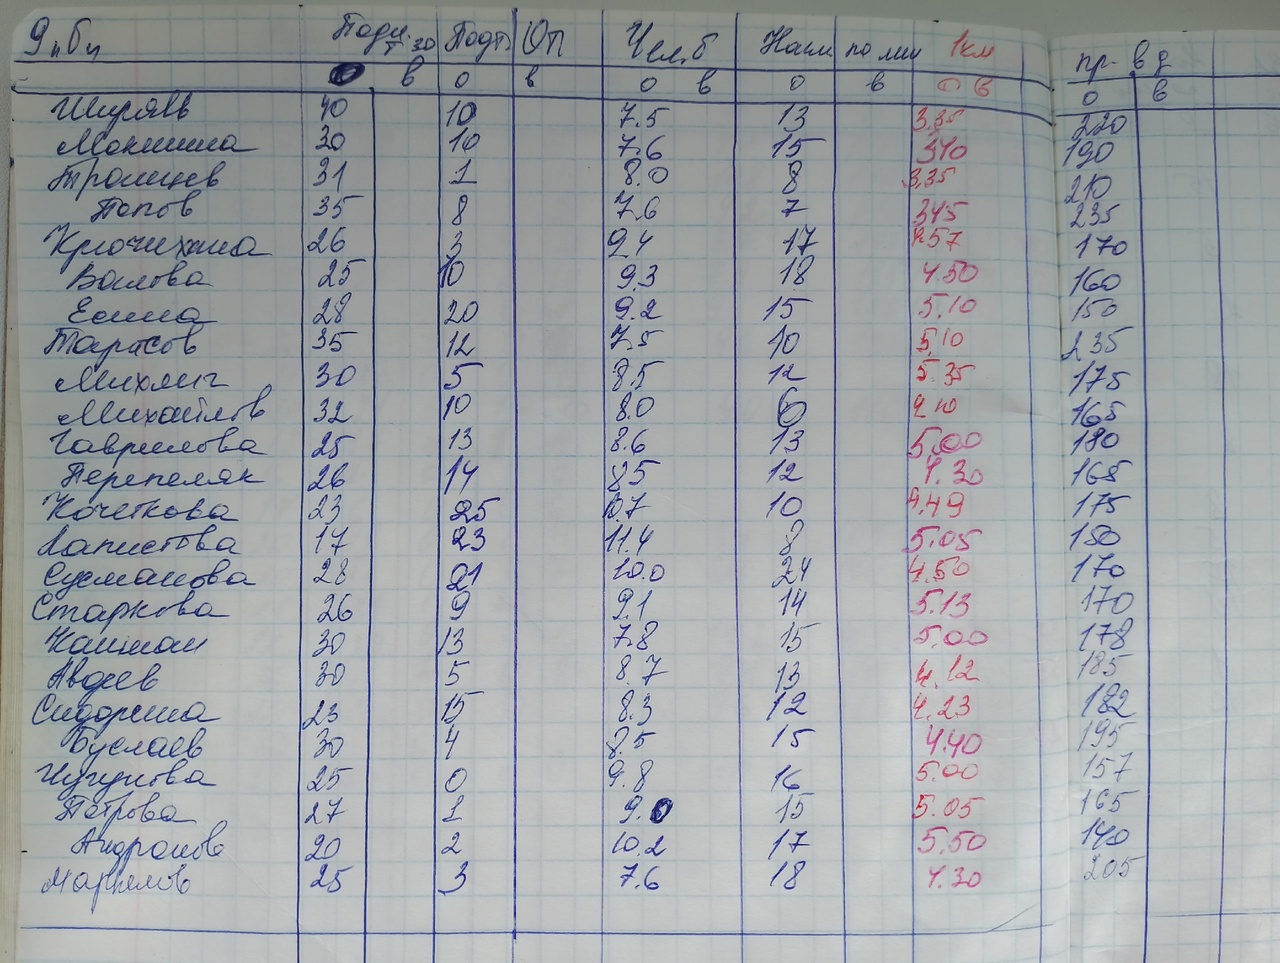 Подт. Оп Чел.б Накл 1км пр. в д
о в о в о в о в о в о в
40 10 7.5 13 3,35 220
30 10 7.6 15 340 190
31 1 8.0 8 3,35 210
Попов 35 8 7.6 7 345 235
26 3 9.4 17 4.57 170
Валова 25 10 9.3 18 4.50 160
Есина 28 20 9.2 15 5.10 150
Тарасов 35 12 7.5 10 5,10 235
30 5 8.5 12 5.35 175
Михайлов 32 10 8.0 6 165
Гаврилова 25 13 8.6 13 5.00 180
Перепеляк 26 14 8.5 12 4.30 165
Кочеткова 23 25 10.7 10 4.49 175
17 23 11.4 8 5.05 150
Сусманова 28 21 10.0 24 4.50 170
Старкова 26 9 9.1 14 5.13 170
30 13 7.8 15 5.00 178
Авдеев 30 5 8.7 13 4.12 185
23 15 8.3 12 4.23 182
Буслаев 30 4 8.5 15 4.40 195
25 0 9.8 16 5.00 157
Петрова 27 1 9.0 15 5.05 165
20 2 10.2 17 5.50 140
Маркелов 25 3 7.6 18 4.30 205